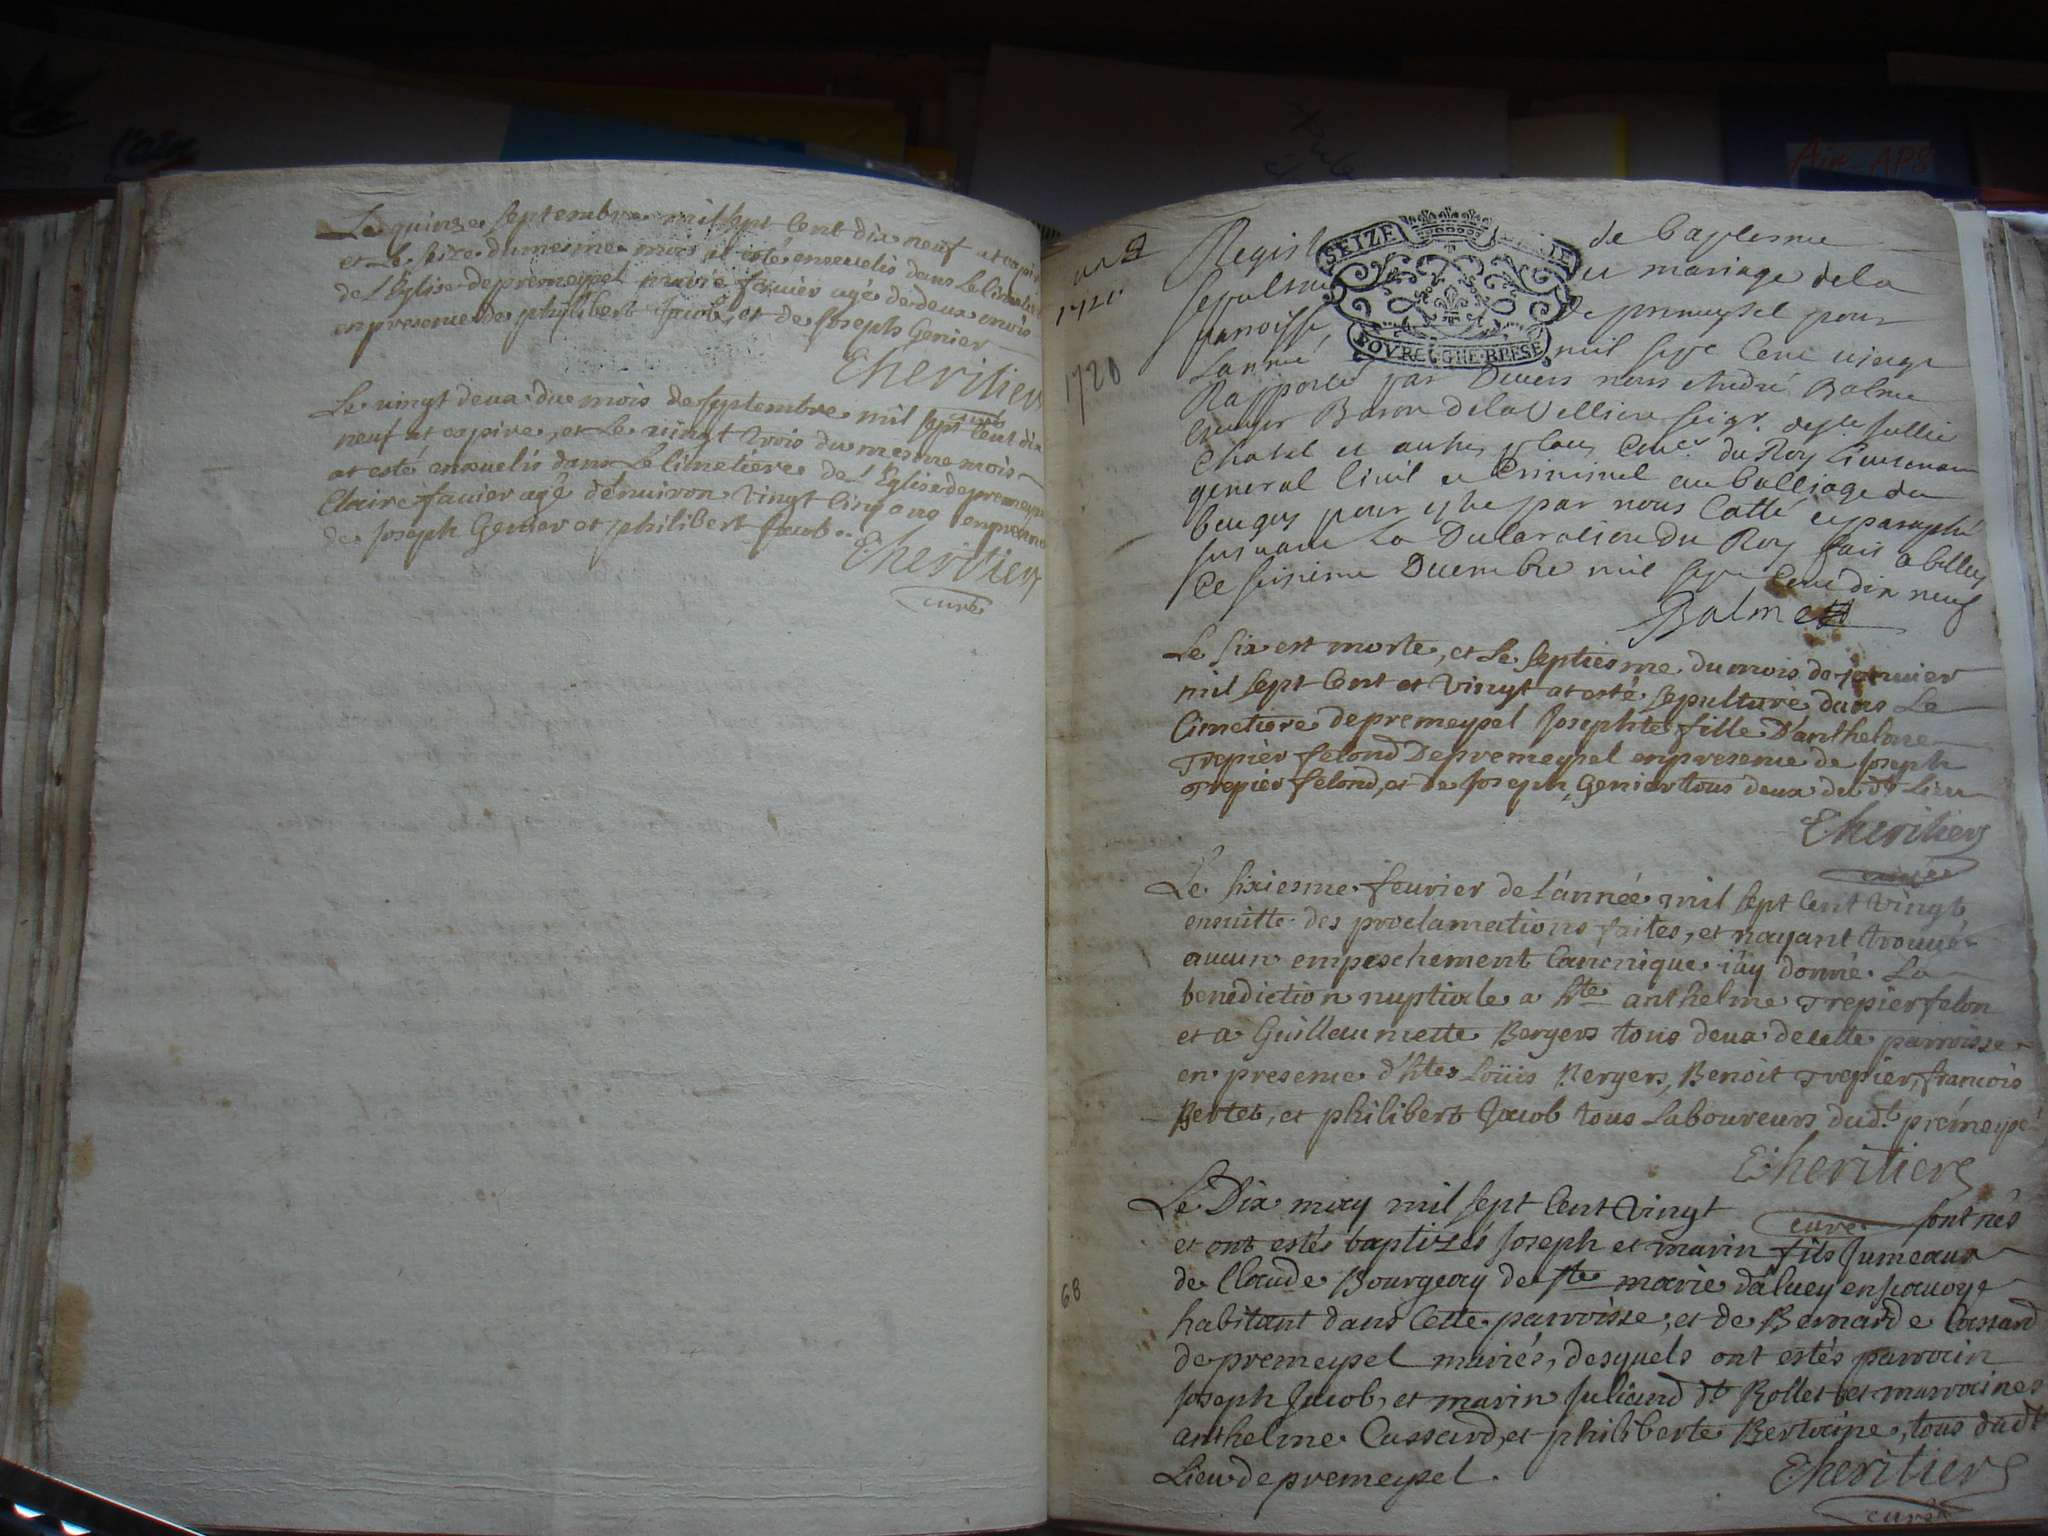 Le quinze septembre mil sept Cent dix neuf at expiré
et Le seize du mesme mois at esté enseuelis dans Le Cimetiere
de L'Eglise de premeysel marie fauier agé de deux mois
en presence de philibert Jacob, et de Joseph Genier
Eheritier
curé
Le vingt deux du mois de septembre mil sept Cent dix
neuf at expiré, et Le vingt trois du mesme mois
at esté enseuelis dans Le Cimetiere de L'Eglise de premeysel
Claire fauier agé d'enuiron vingt Cinq ans en presence
de Joseph Genier et philibert Jacob..
Eheritier
curé
1720
1720
Regist de baptesme
sepultu et mariage de la
parroisse de premeysel pour
Lanné mil sept Cent vingt
Rapporté par Devers nous André Balme
Baron de la Velliere seigr
Chatel et autres places Conr du Roy Lieutenant
general Ciuil et Criminel au balliage du
beugey pour estre par nous Cotté et paraphé
suiuant La Declaration du Roy fait a belley
Ce Decembre mil sept Cent dix neuf
Balme
SEIZE
BOVRGOGNE BRESSE
Le six est morte, et Le septiesme du mois de januier
mil sept Cent et Vingt at esté sepulturé dans Le
Cimetiere de premeysel Josephte fille D'anthelme
Trepier felond De premeysel en presence de Joseph
Trepier felond, et de Joseph Genier tous deux du dt Lieu
Eheritier
curé
Le sixiesme feurier de l'année mil sept Cent Vingt
ensuitte des proclamations faites, et nayant trouué
aucun empeschement Canonique i'ay donné La
benediction nuptiale a hte anthelme Trepier felon
et a Guillaumette Bergers tous deux de cette parroisse
en presence d'htes Loüis Bergers, Benoit Trepier, francois
Bertet, et philibert Jacob tous Laboureurs dudt. prémeysel
Eheritier
curé
Le Dix may mil sept Cent Vingt sont nés
et ont estés baptizés Joseph et marin fils Jumeaux
de Claude Bourgeay de ste marie d'aluey en sauoye
habitant dans Cette parroisse, et de Bernarde Cassard
de premeysel mariés, desquels ont estés parrain
Joseph Jacob, et marin Juliand dt Rollet et marraines
anthelme Cassard, et philiberte Bertoine, tous dudt
Lieu de premeysel.
Eheritier
curé
68